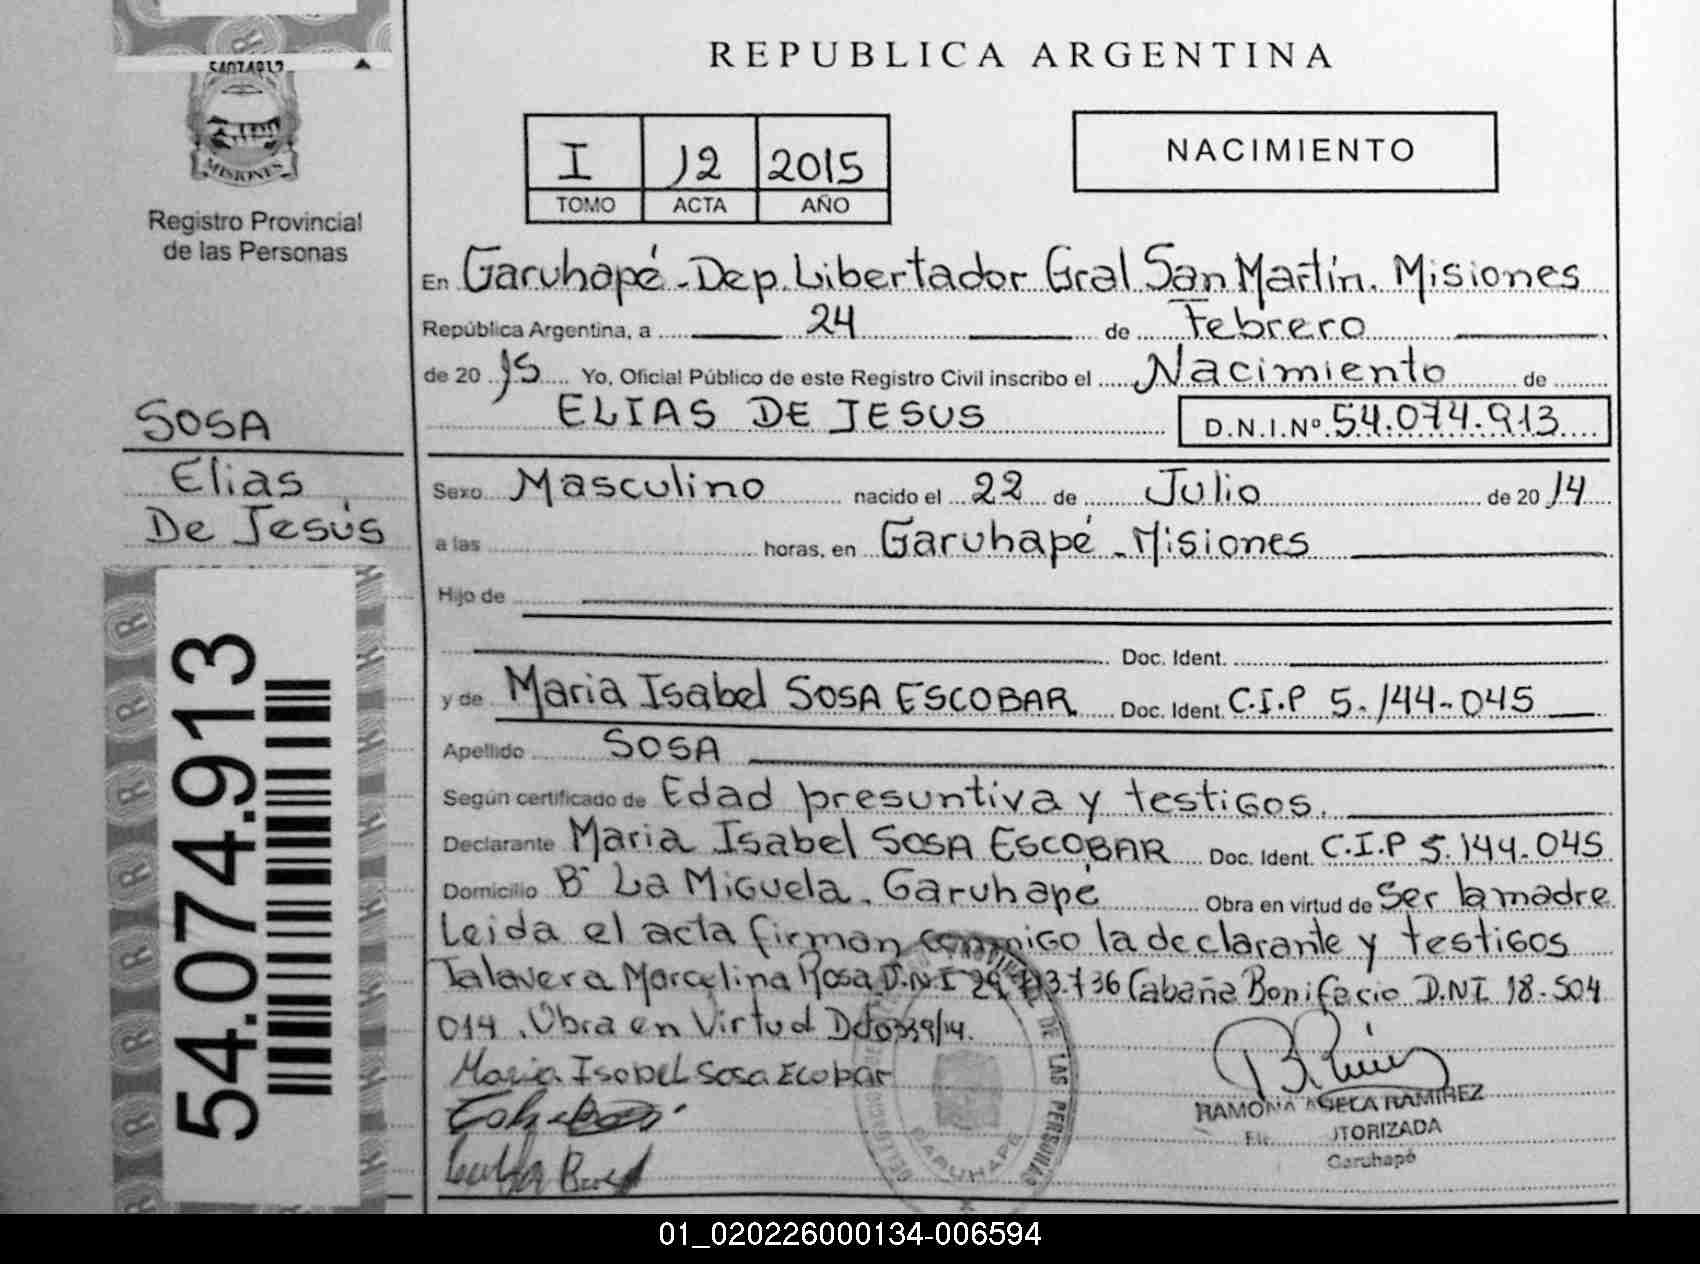 54074912
MISIONES
Registro Provincial
de las Personas
SOSA
Elias
De Jesús
54.074.913
REPUBLICA ARGENTINA
I 12 2015
TOMO ACTA AÑO
NACIMIENTO
En Garuhapé - Dep. Libertador Gral San Martín. Misiones
República Argentina, a 24 de Febrero
de 20 15 Yo, Oficial Público de este Registro Civil inscribo el Nacimiento de
ELIAS DE JESUS D.N.I.Nº 54.074.913
Sexo Masculino nacido el 22 de Julio de 20 14
a las horas, en Garuhapé - Misiones
Hijo de
Doc. Ident.
y de Maria Isabel SOSA ESCOBAR Doc. Ident. C.I.P 5.144-045
Apellido SOSA
Según certificado de Edad presuntiva y testigos.
Declarante Maria Isabel SOSA ESCOBAR Doc. Ident. C.I.P 5.144-045
Domicilio Bº La Miguela. Garuhapé Obra en virtud de Ser la madre
Leida el acta firman conmigo la declarante y testigos
Talavera Marcelina Rosa D.N.I 29. Cabaña Bonifacio D.NI 18-504
014. Obra en Virtud Dcto 339/14.
Maria Isabel Sosa Ecobar
DE LAS PERSONAS
GARUHAPE
RAMONA RAMIREZ
Garuhapé
01_020226000134-006594